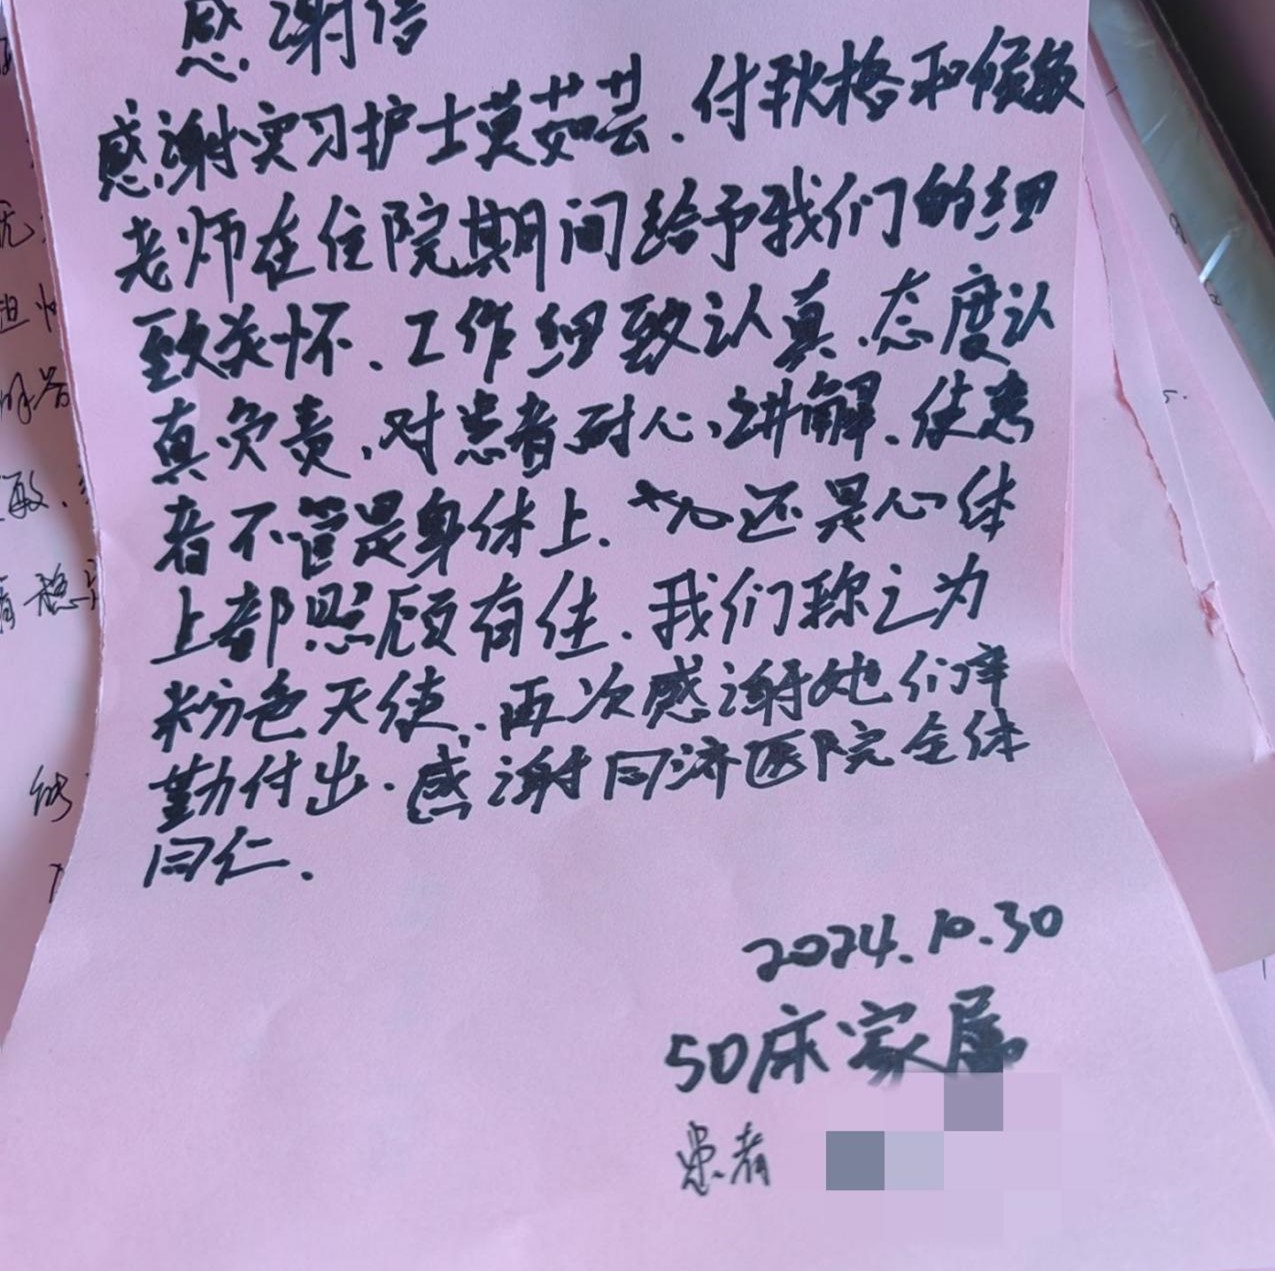 感谢信
感谢实习护士莫茹芸、付秋格和候敏
老师在住院期间给予我们的细
致关怀、工作细致认真、态度认
真负责,对患者耐心讲解、使患
者不管是身体上、还是心体
上都照顾有佳、我们称之为
粉色天使、再次感谢她们辛
勤付出.感谢同济医院全体
同仁.
2024.10.30
50床家属
患者